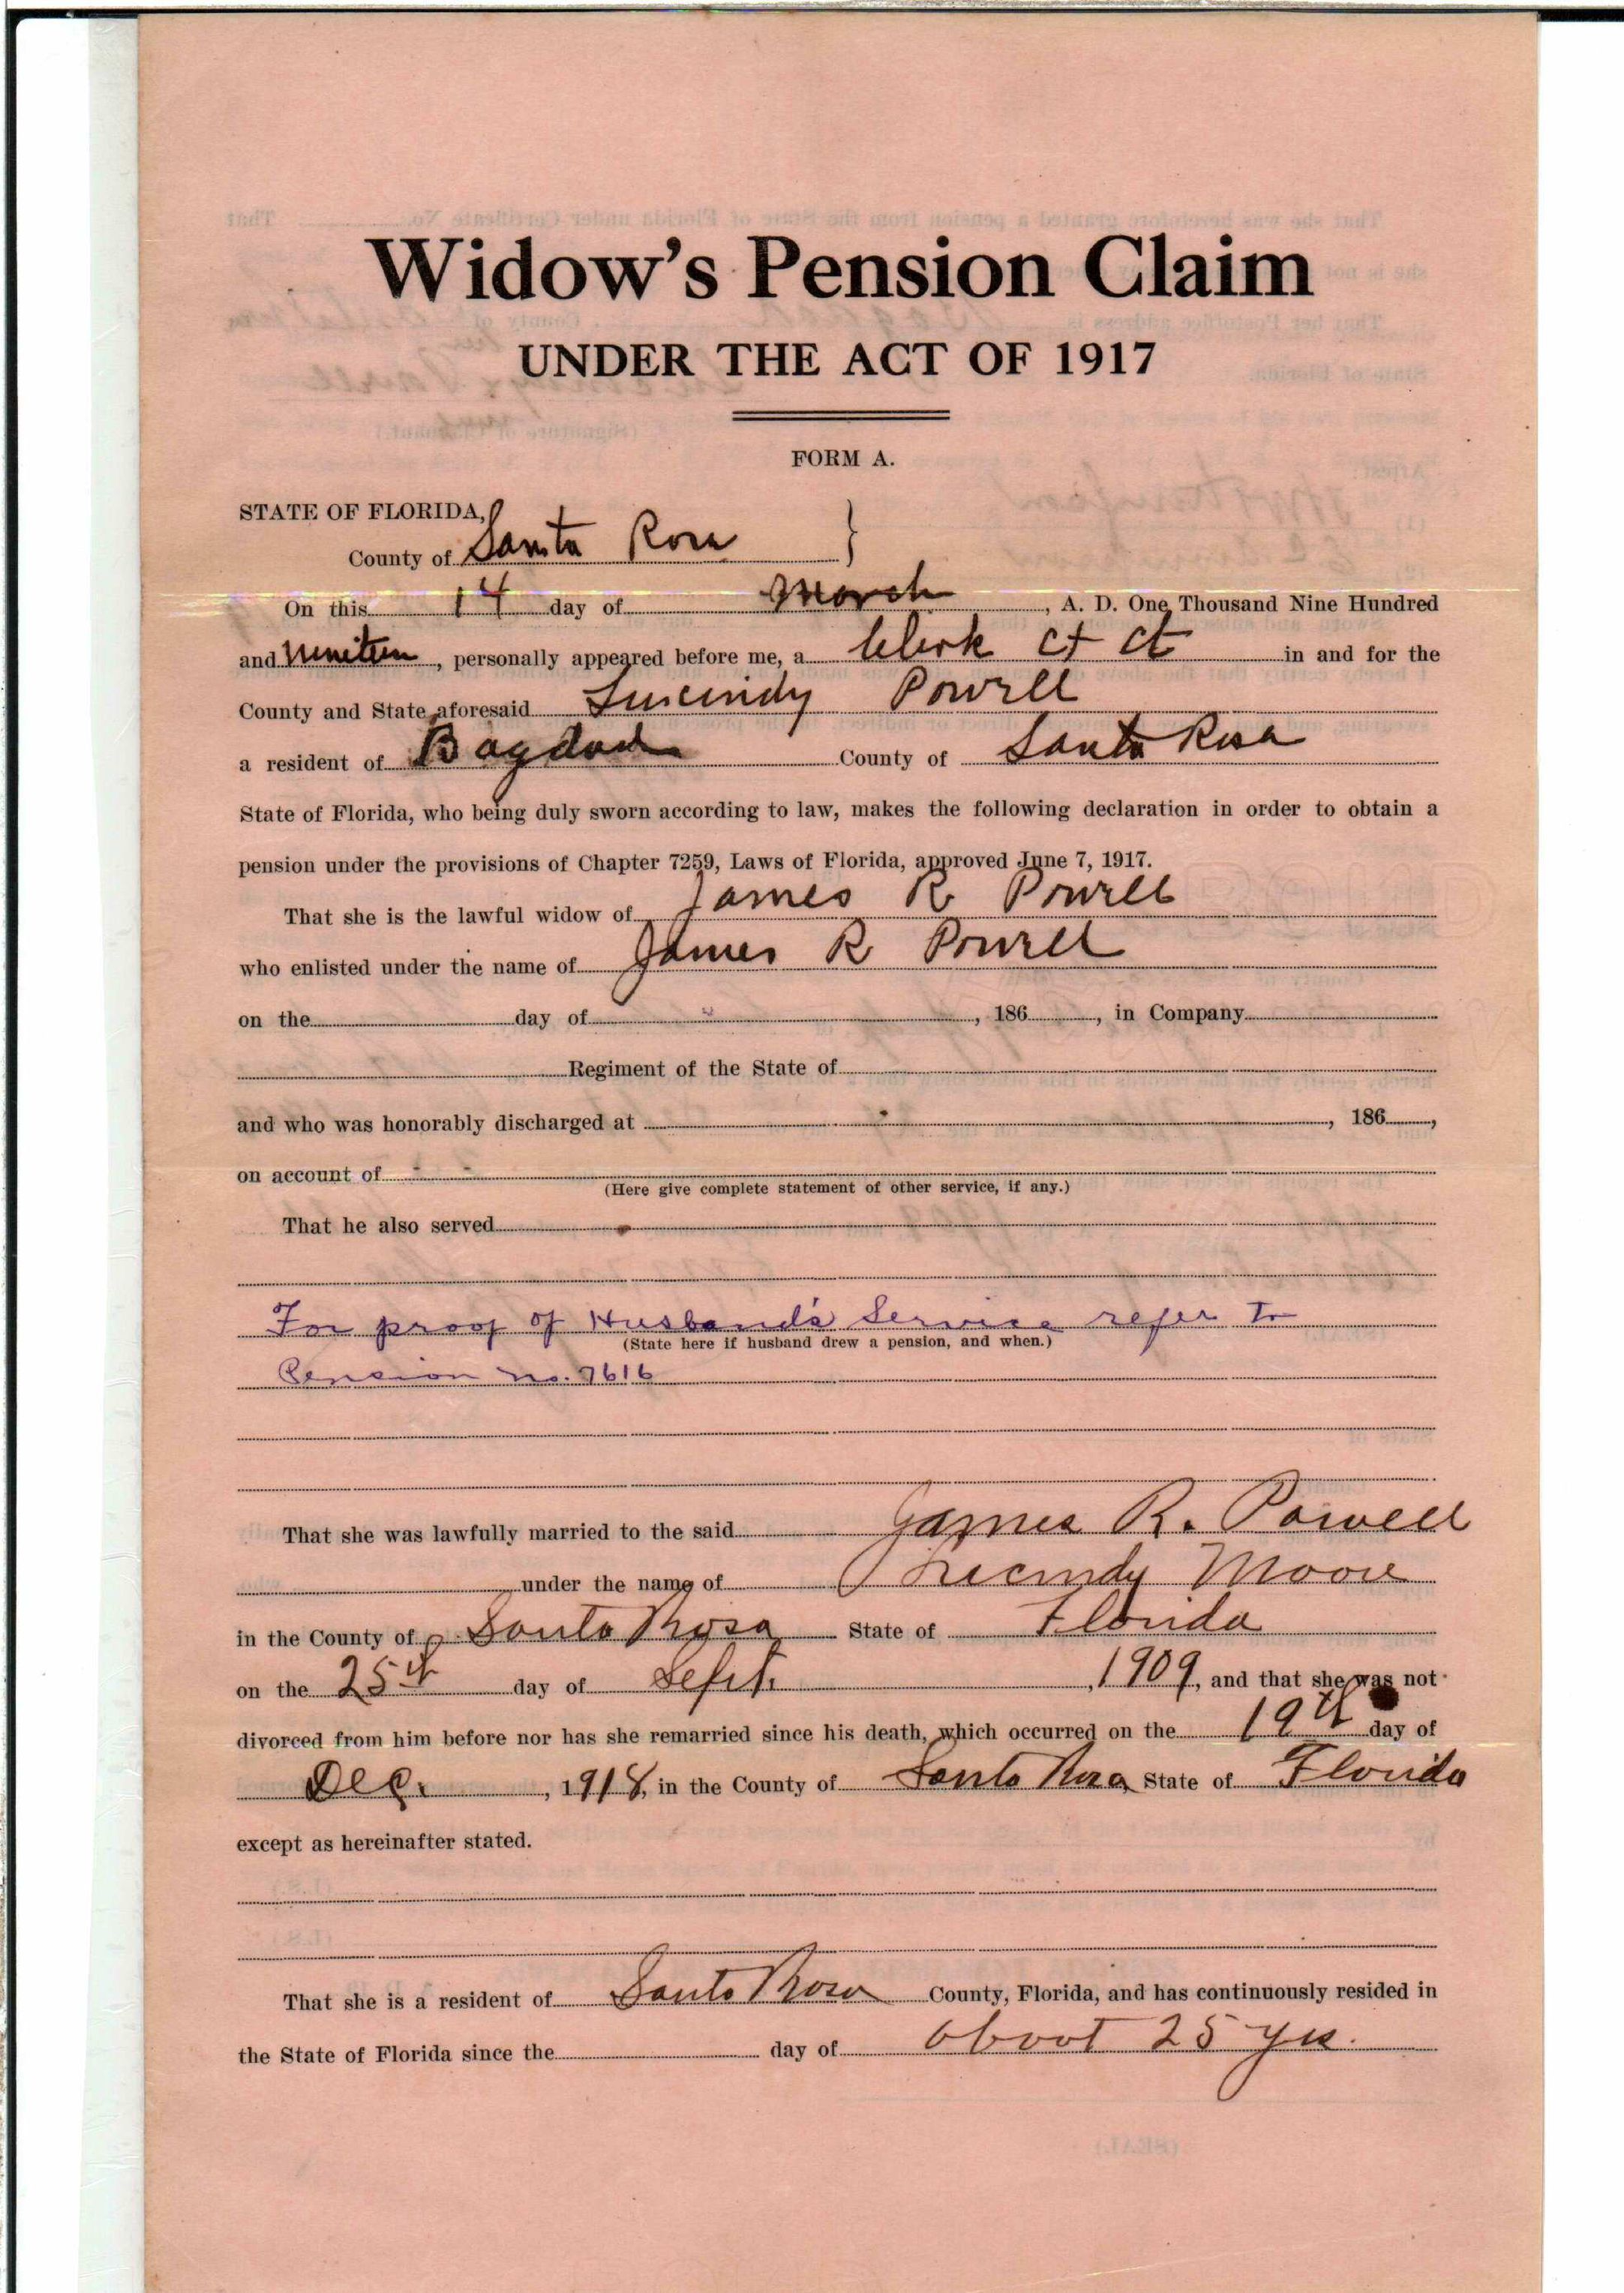 Widow's Pension Claim
UNDER THE ACT OF 1917
FORM A.
STATE OF FLORIDA,
County of Santa Rosa }
On this 14 day of March, A. D. One Thousand Nine Hundred
and nineteen, personally appeared before me, a Clerk Ct Ct in and for the
County and State aforesaid Lucindy Powell
a resident of Bagdad County of Santa Rosa
State of Florida, who being duly sworn according to law, makes the following declaration in order to obtain a
pension under the provisions of Chapter 7259, Laws of Florida, approved June 7, 1917.
That she is the lawful widow of James R Powell
who enlisted under the name of James R Powell
on the day of , 186 , in Company
Regiment of the State of
and who was honorably discharged at , 186 ,
on account of
(Here give complete statement of other service, if any.)
That he also served
For proof of Husband's Service refer to
(State here if husband drew a pension, and when.)
Pension no. 7616
That she was lawfully married to the said James R. Powell
under the name of Lucindy Moore
in the County of Santa Rosa State of Florida
on the 25th day of Sept. , 1909, and that she was not
divorced from him before nor has she remarried since his death, which occurred on the 19th day of
Dec. , 1918, in the County of Santa Rosa State of Florida
except as hereinafter stated.
That she is a resident of Santa Rosa County, Florida, and has continuously resided in
the State of Florida since the day of about 25 yrs.